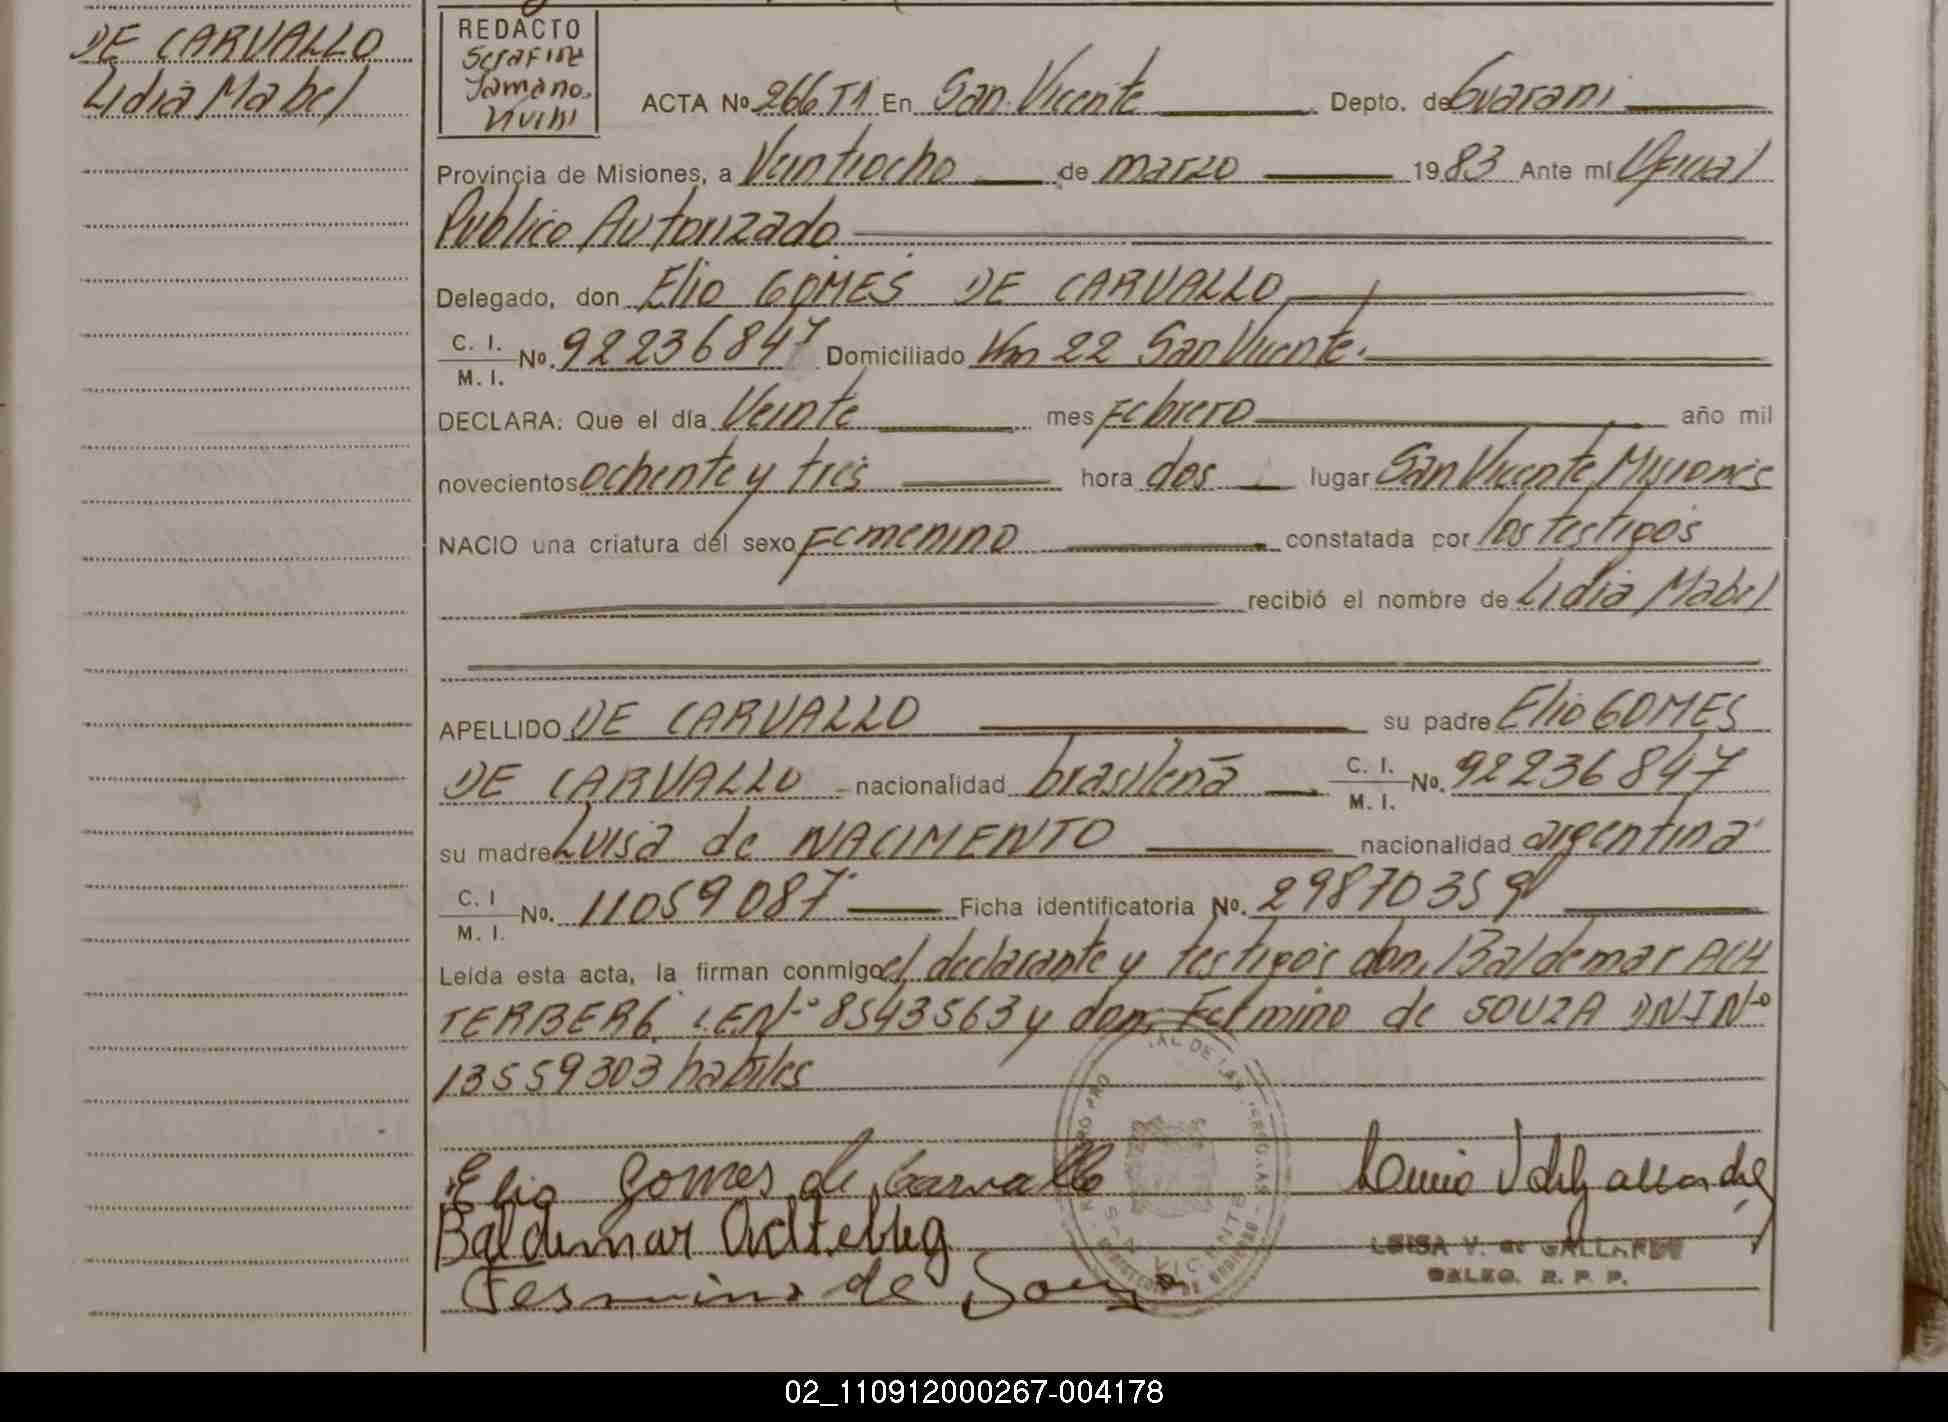 DE CARVALLO
Lidia Mabel
REDACTO
ACTA Nº 266 T1 En San Vicente Depto. de Guarani
Provincia de Misiones, a Veintiocho de marzo 1983 Ante mí Oficial
Publico Autorizado
Delegado, don Elio GOMES DE CARVALLO
C. I.
M. I. No. 92236847 Domiciliado Km 22 San Vicente.
DECLARA: Que el día Veinte mes Febrero año mil
novecientos ochente y tres hora dos lugar San Vicente Misiones
NACIO una criatura del sexo Femenino constatada por los testigos
recibió el nombre de Lidia Mabel
APELLIDO DE CARVALLO su padre Elio GOMES
DE CARVALLO nacionalidad brasileña C. I.
M. I. No. 92236847
su madre Luisa de NACIMENTO nacionalidad argentina
C. I
M. I. No. 11059087 Ficha identificatoria No. 29870359
Leída esta acta, la firman conmigo el declarante y testigos don, Baldemar ACH
TERBERG LE Nº 8543563 y don, Fermino de SOUZA DNI Nº
13559303 habiles
Elio Gomes de Carvallo
Baldemar
Fermino de Souza
LUISA V. de GALLARDO
DALEG. R. P. P.
SAN VICENTE
02_110912000267-004178